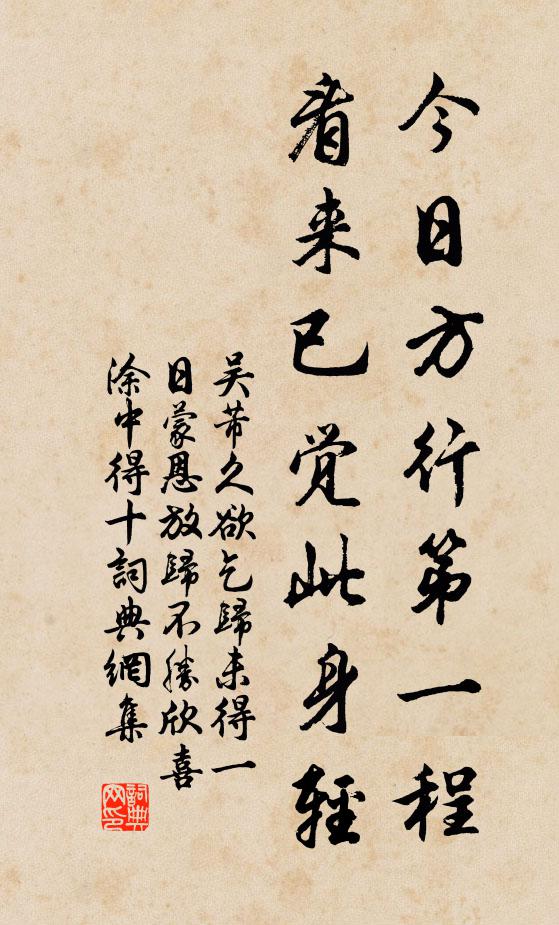 今日方行第一程
看来已觉此身輕
吴芾久欲乞歸未得一
日蒙恩放歸不勝欣喜
涂中得十詞典網集
詞典网印